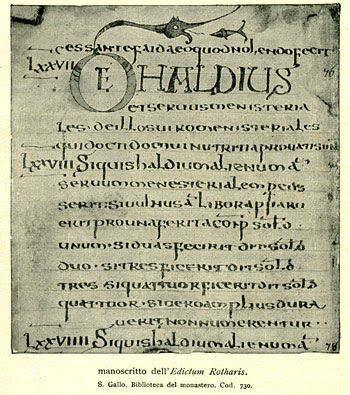 cessantefaidaeoquodnolendofecit
LXXVII DE HALDIUS 76
etseruusmenisteria
les. deillosuiromenisteriales
quidoctidomuinutritiaprouatisun
LXXVIII Siquishaldiumalienum a
seruummenesterialem percus
serit: siuulnus a liborapparu
eritprounaferita conp sold
unum. siduasfecerit det sold
duo. sitresficerit det sold
tres siquattuorficerit det sold
quattuor. siueroampliusdura
uerit nonnumerentur
LXXVIIII Siquishaldiumalienum a 78
manoscritto dell'Edictum Rotharis.
S. Gallo, Biblioteca del monastero. Cod. 730.